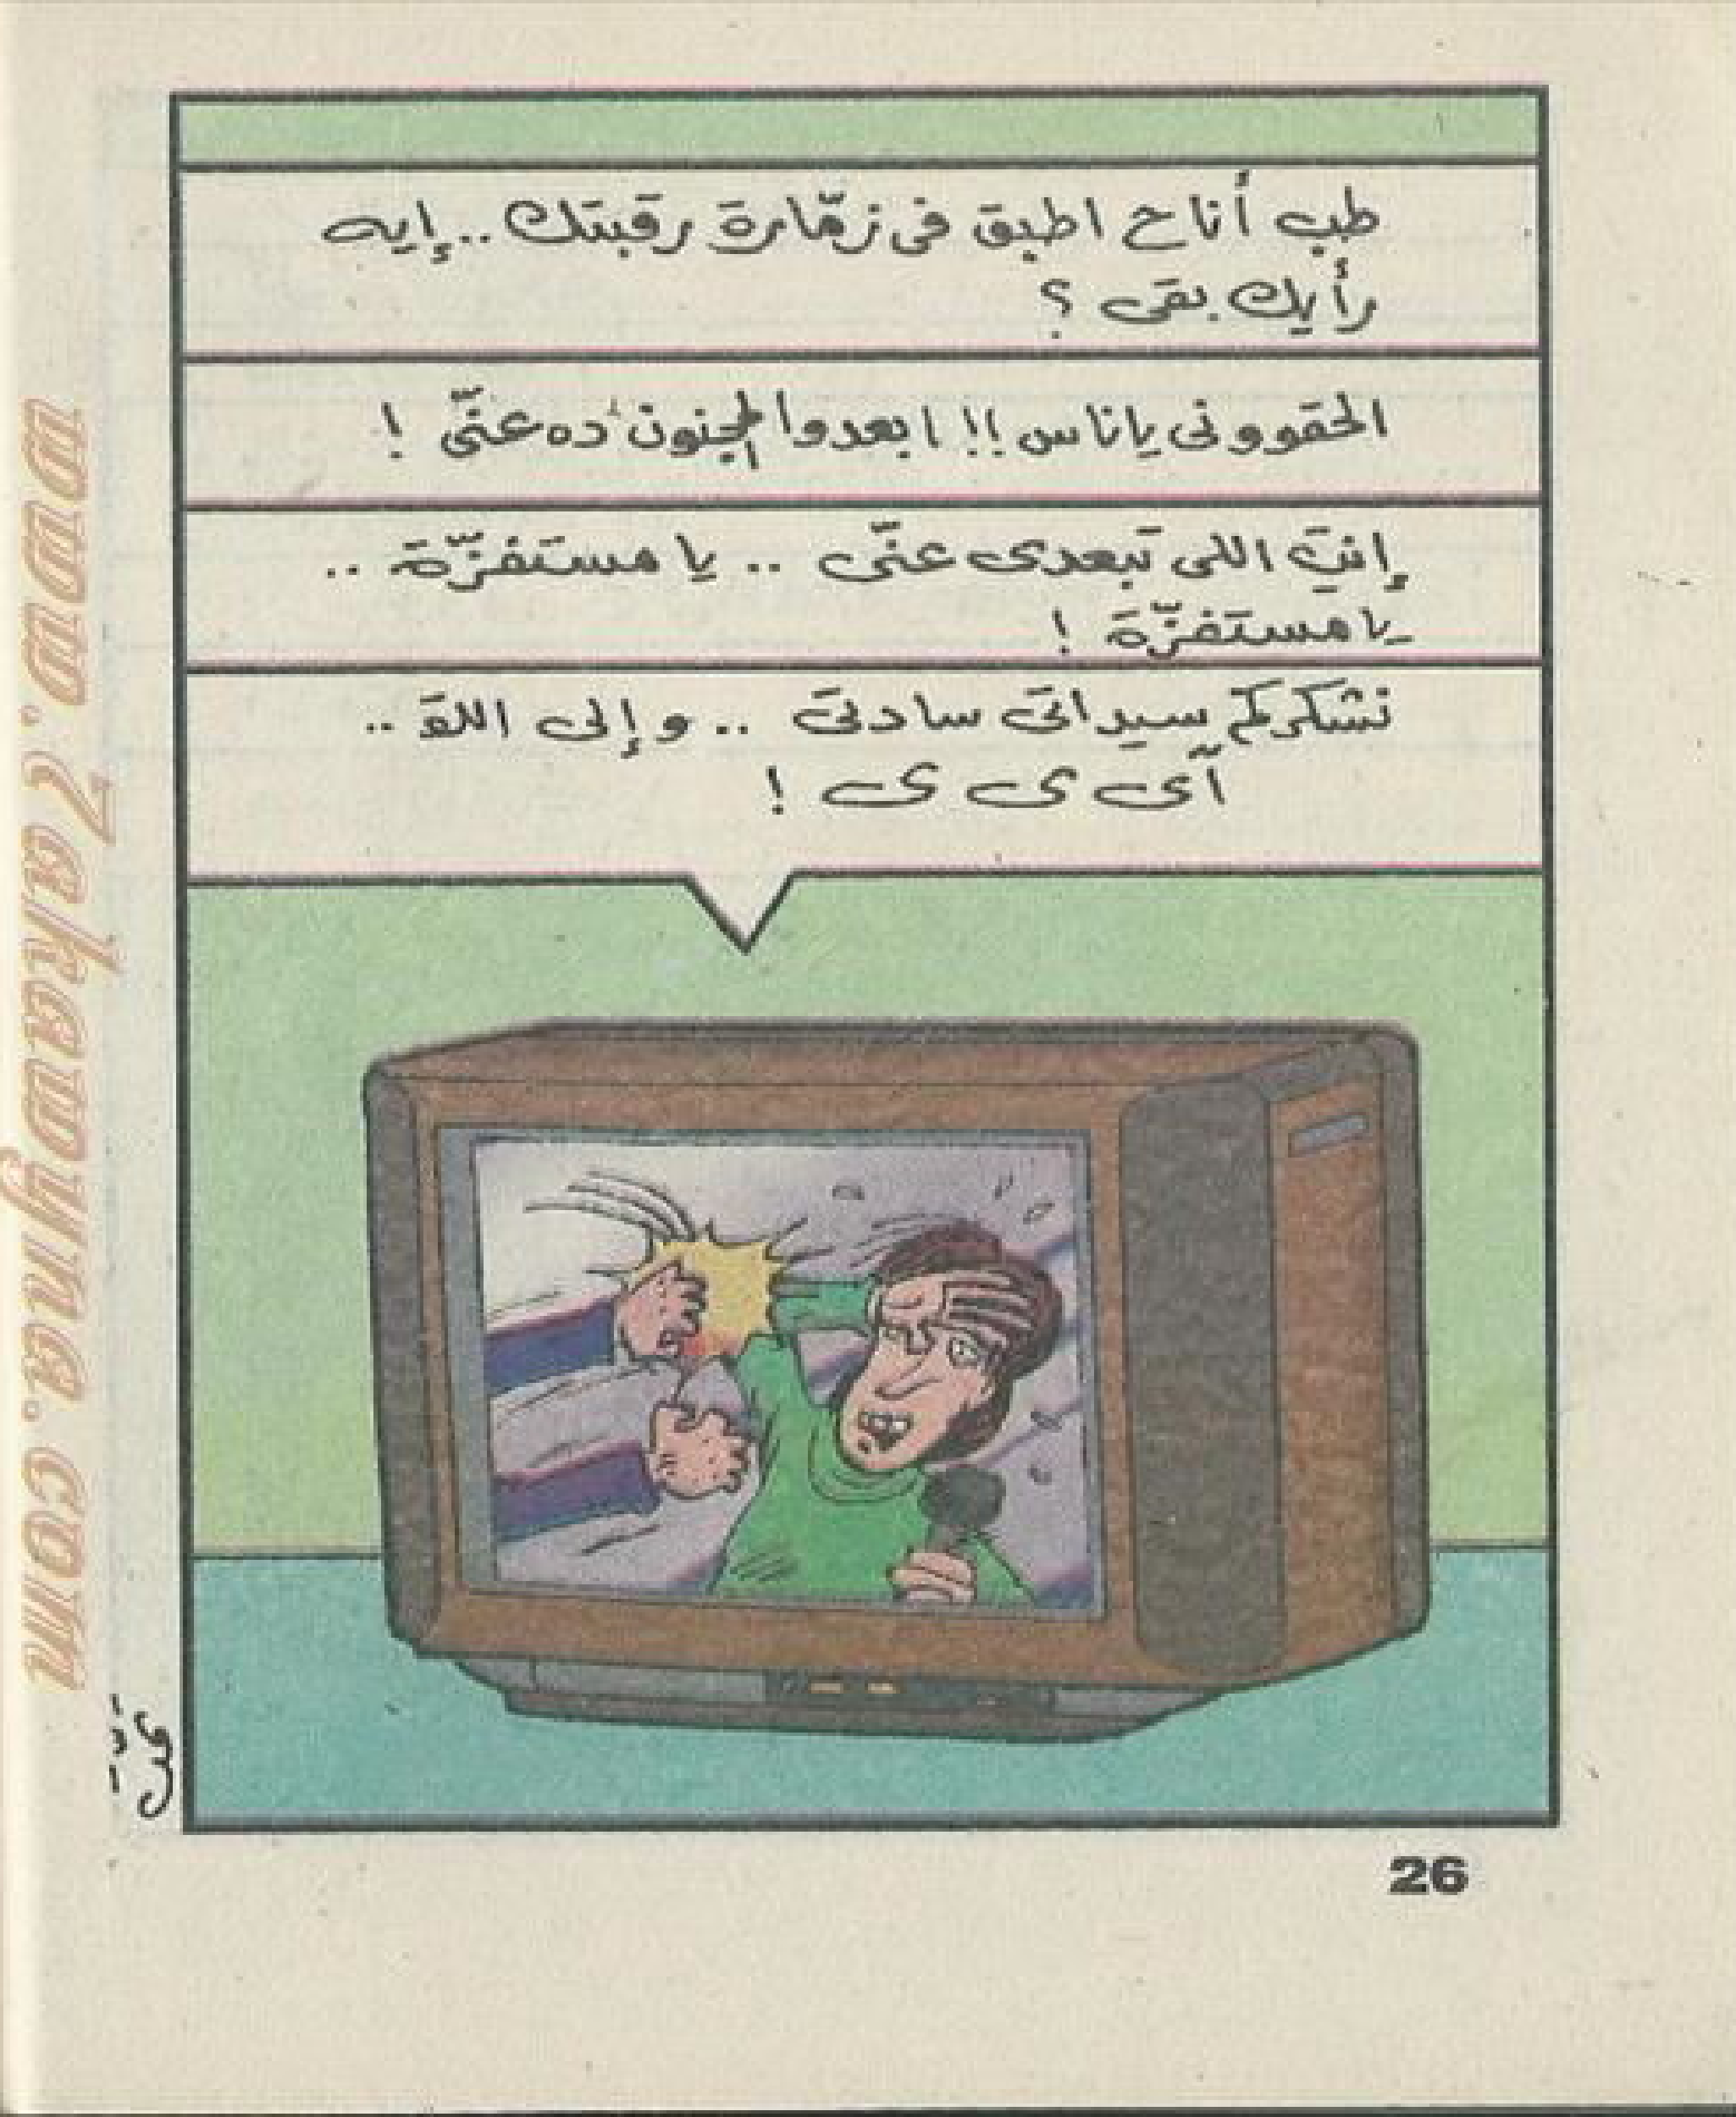 طب أنا ح اطبق فى زمّارة رقبتك .. إيه
رأيك بقى ؟
الحقوونى يا ناس !! ابعدوا المجنون ده عنّى !
إنتِ اللى تبعدى عنّى .. يا مستفزّة ..
يا مستفزّة !
نشكركم سيداتى سادتى .. وإلى اللقـ ..
آى ى ى !
26
www.Zakawyna.com